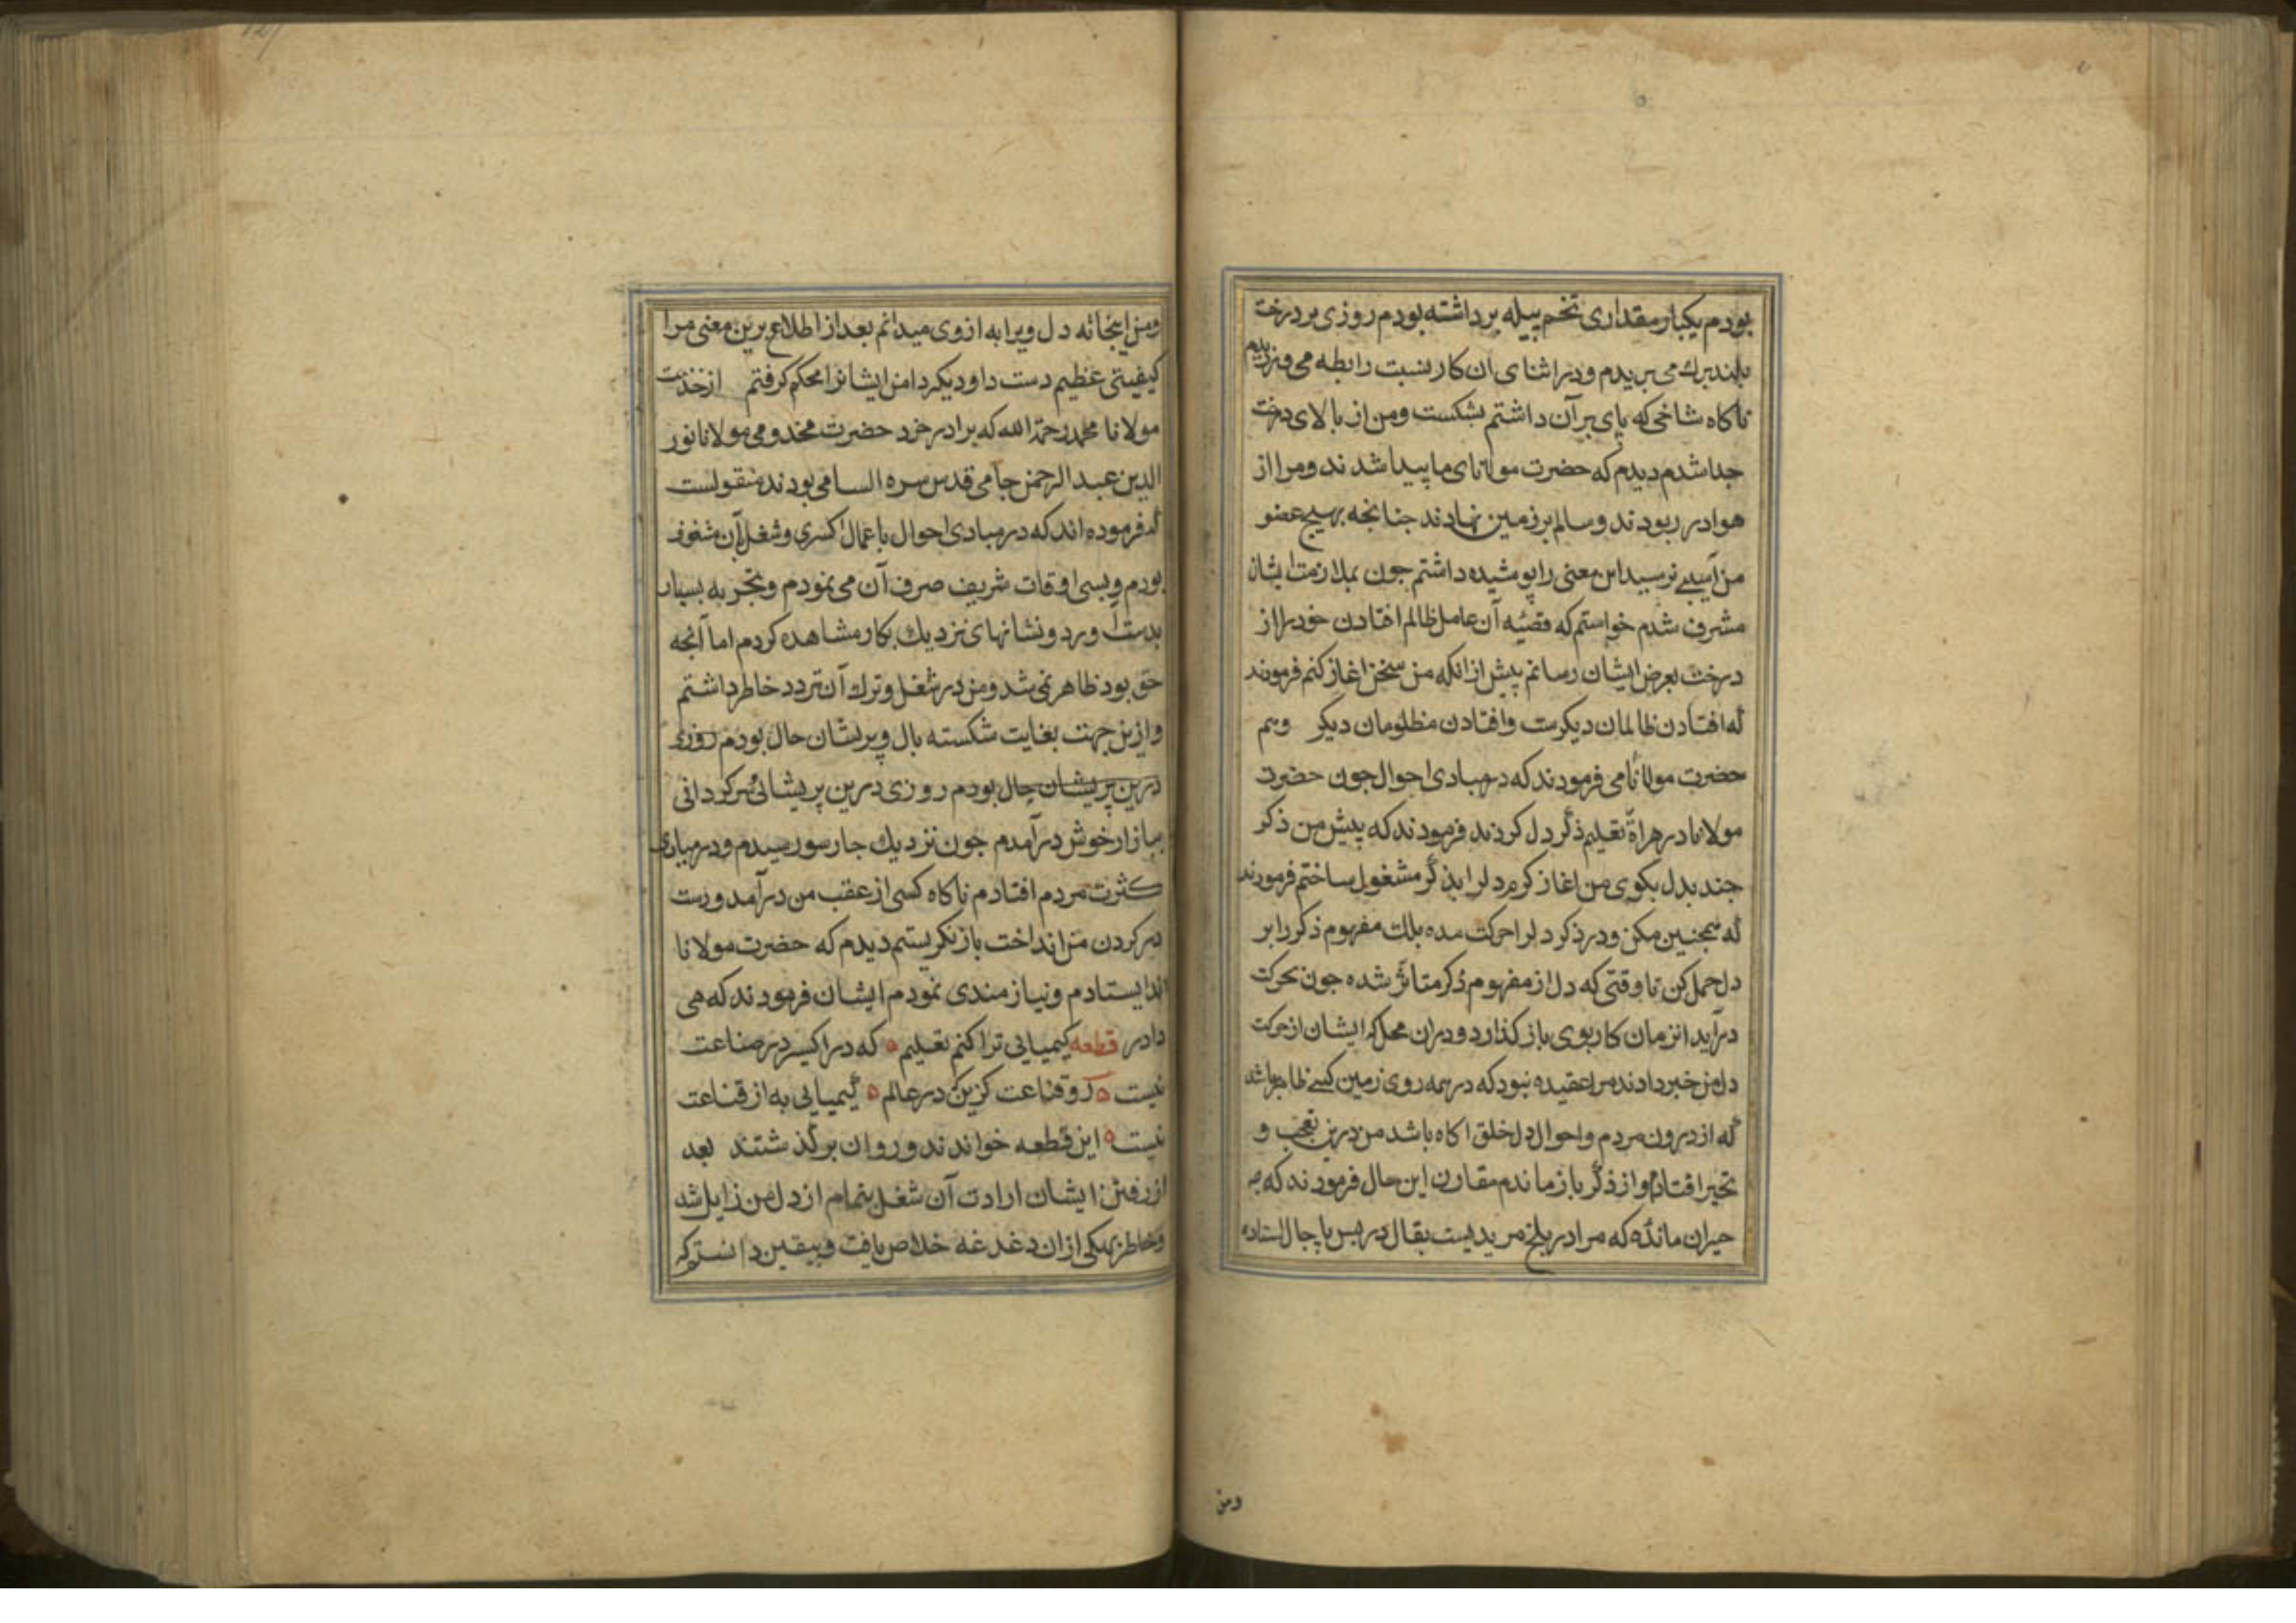 بودم یکبار مقداری تخم پیله برداشته بودم روزی بر درخت
بلند برك می بریدم و در اثنای ان کار نسبت رابطه می ورزیدم
ناکاه شاخی که پای بر آن داشتم بشکست ومن از بالای درخت
جدا شدم دیدم که حضرت مولانای ما پیدا شدند ومرا از
هوا در ربودند وسالم بر زمین نهادند جنانجه بهیج عضو
من آسیبی نرسید این معنی را پوشیده داشتم جون بملازمت ایشان
مشرف شدم خواستم که قضیّه آن عامل ظالم افتادن خود را از
درخت بعرض ایشان رسانم پیش از انکه من سخن اغاز کنم فرمودند
که افتادن ظالمان دیکرست وافتادن مظلومان دیکر وهم
حضرت مولانا می فرمودند که در مبادی احوال جون حضرت
مولانا در هراة تعلیم ذکر دل کردند فرمودند که پیش من ذکر
جند بدل بکوی من اغاز کردم دلرا بذکر مشغول ساختم فرمودند
که همجنین مکن ودر ذکر دلرا حرکت مده بلك مفهوم ذکر را بر
دل حمل کن تا وقتی که دل از مفهوم ذکر متاثر شده جون بحرکت
در آید انزمان کار بوی باز کذارد ودران محل که ایشان از حرکت
دل من خبر دادند مرا عقیده نبود که در همه روی زمین کسی ظاهر باشد
که از درون مردم واحوال دل خلق اکاه باشد من درین تعجب و
تحیر افتادم واز ذکر باز ماندم مقارن این حال فرمودند که جه
حیران مانده که مرا در بلخ مریدیست بقال در پس پاجال استاده
ومن
ومن اینجا نه دل ویرا به از وی میدانم بعد از اطلاع برین معنی مرا
کیفیتی عظیم دست داد ودیکر دامن ایشانرا محکم کرفتم از خدمت
مولانا محمد رحمة الله که برادر خرد حضرت مخدومی مولانا نور
الدین عبد الرحمن جامی قدس سره السامی بودند منقولست
که فرموده اند که در مبادی احوال باعمال اکسری وشغل آن مشغوف
بودم وبسی اوقات شریف صرف آن می نمودم وتجربه بسیار
بدست اورد ونشانهای نزدیك بکار مشاهده کردم اما آنجه
حق بود ظاهر نمی شد ومن در شغل وترك آن تردد خاطر داشتم
وازین جهت بغایت شکسته بال وپریشان حال بودم روزی
درین پریشان حال بودم روزی درین پریشانی سرکردانی
ببازار خوش در آمدم جون نزدیك جار سو رسیدم ودر مبادی
کثرت مردم افتادم ناکاه کسی از عقب من در آمد ودست
در کردن من انداخت باز نکریستم دیدم که حضرت مولانا
اند ایستادم ونیازمندی نمودم ایشان فرمودند که ای
دادر قطعه کیمیایی ترا کنم تعلیم ه که در اکسیر در صناعت
نیست ه رو قناعت کزین که در عالم ه کیمیایی به از قناعت
نیست ه این قطعه خواندند وروان بر کذشتند بعد
از رفتن ایشان ارادت آن شغل بتمام از دل من زایل شد
وخاطر بهمکی ازان دغدغه خلاص یافت وبیقین دانستم که